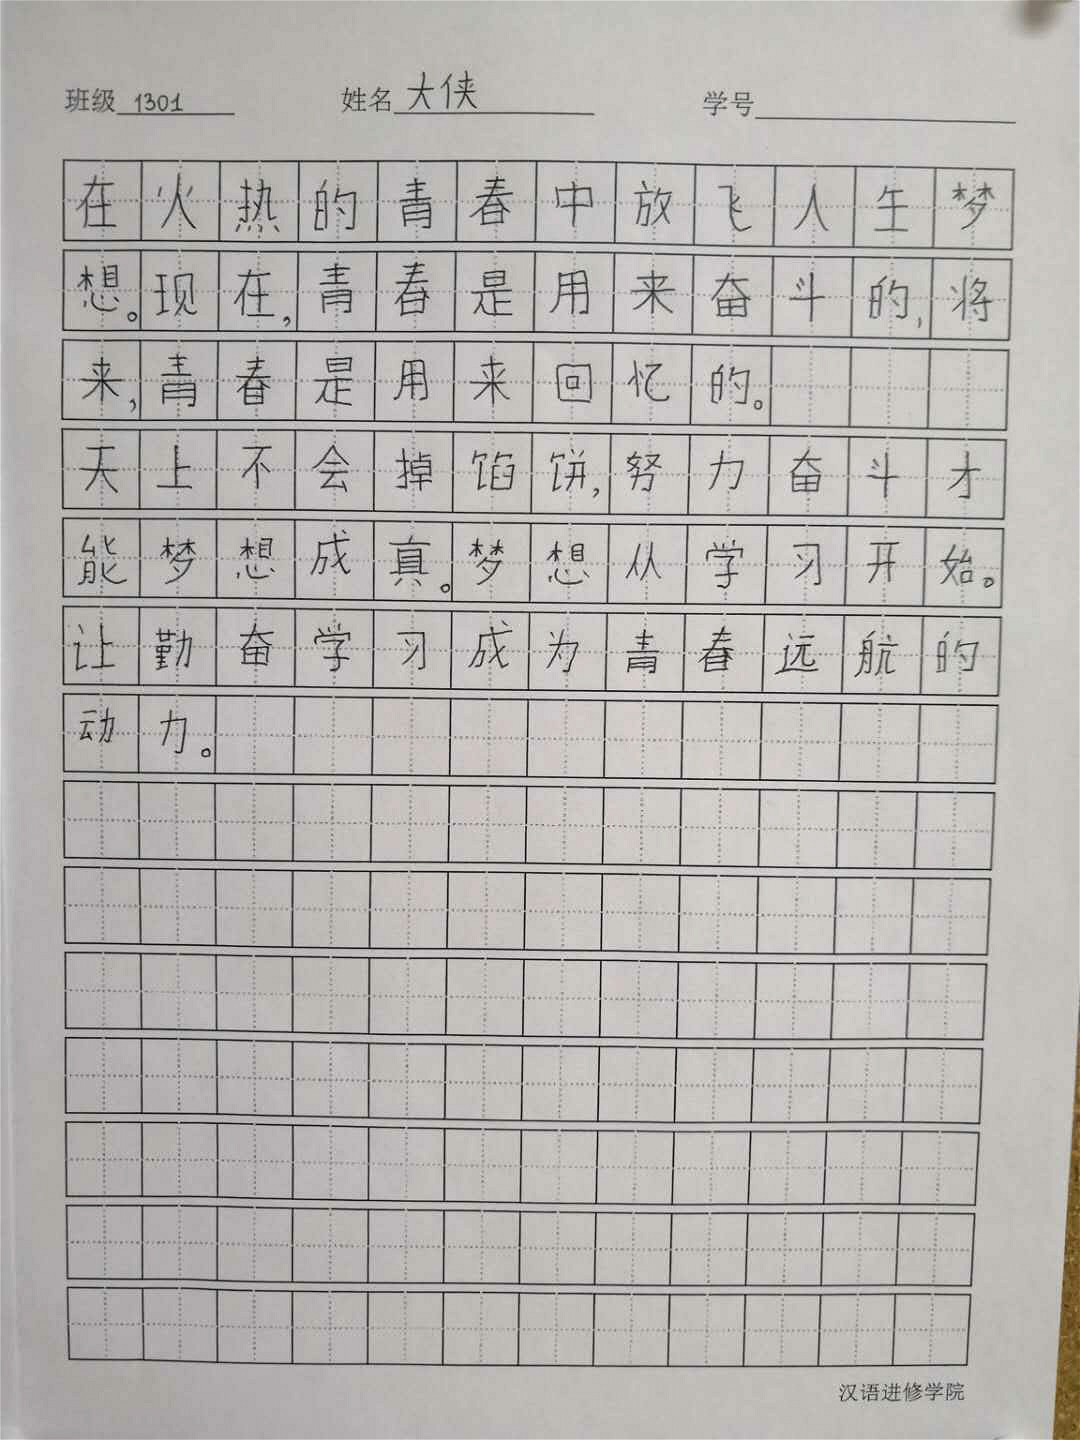 班级 1301 姓名 大侠 学号
在火热的青春中放飞人生梦
想。现在,青春是用来奋斗的,将
来,青春是用来回忆的。
天上不会掉馅饼,努力奋斗才
能梦想成真。梦想从学习开始。
让勤奋学习成为青春远航的
动力。
汉语进修学院